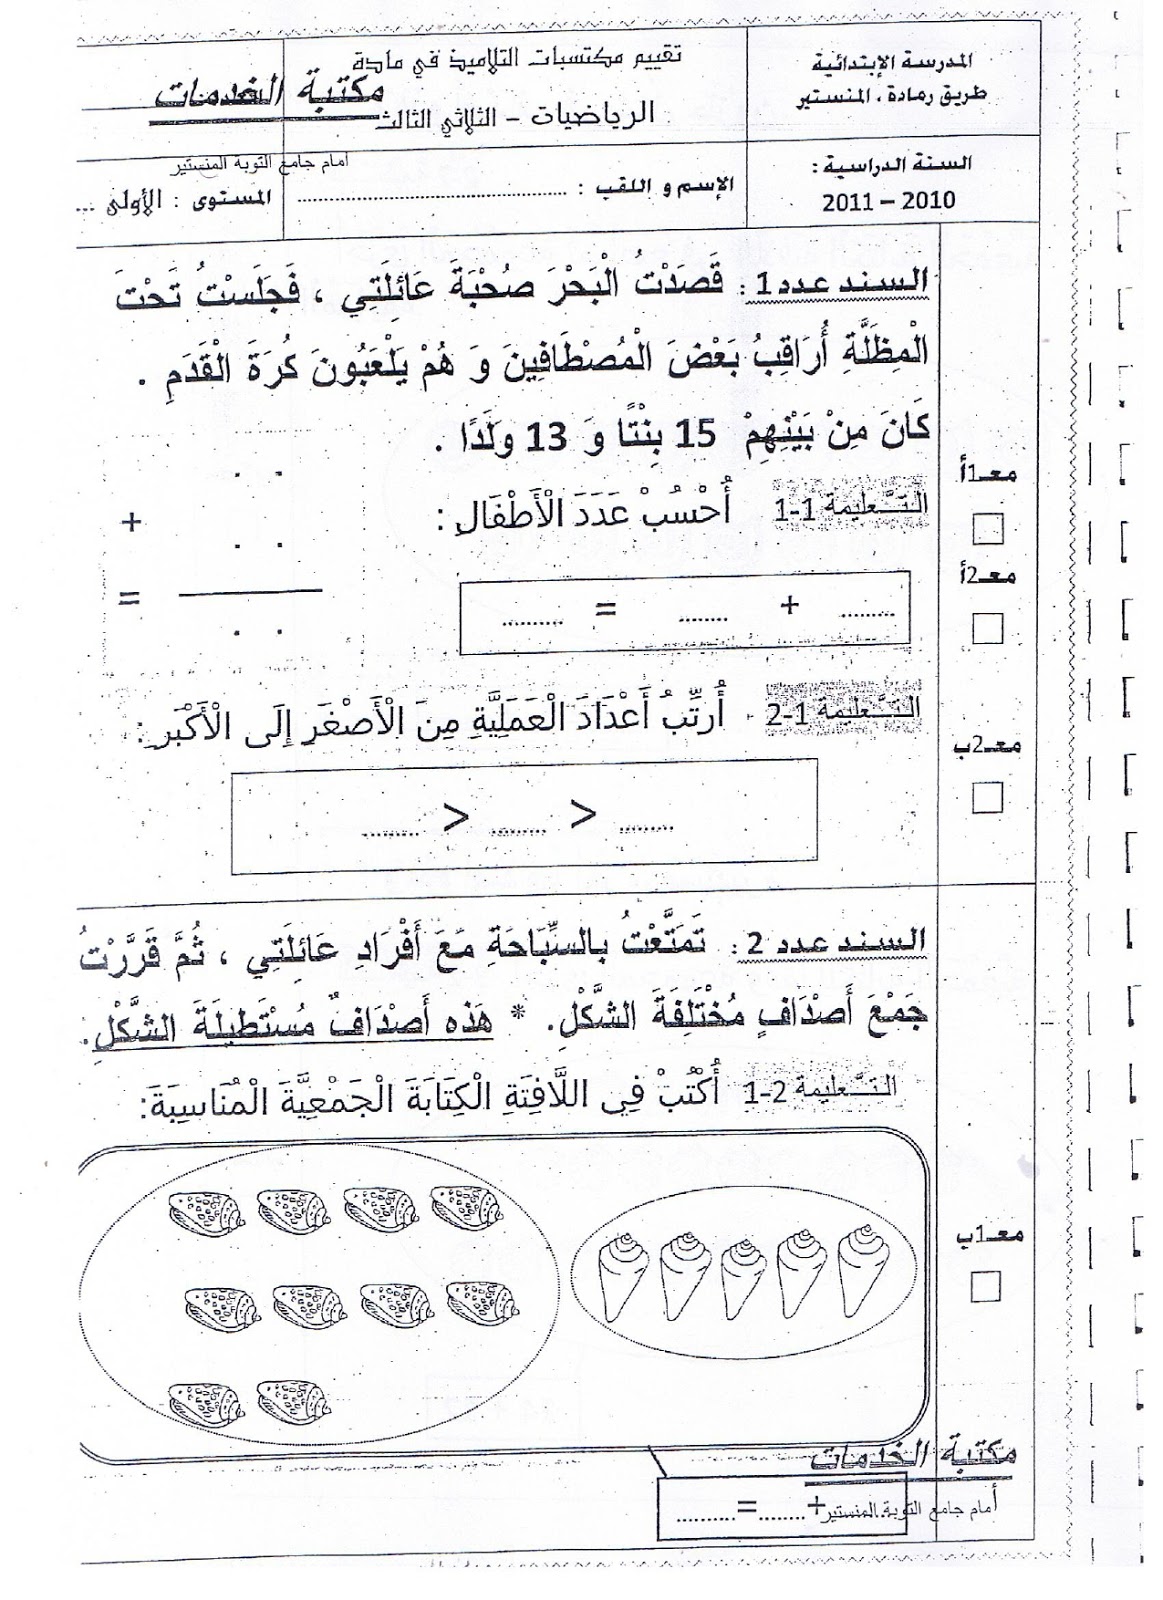 المدرسة الإبتدائية
طريق رمادة ، المنستير
تقييم مكتسبات التلاميذ في مادة
الرياضيات – الثلاثي الثالث
مكتبة الخدمات
أمام جامع التوبة المنستير
السنة الدراسية :
2010 – 2011
الإسم و اللقب : ........................................
المستوى : الأولى ...
السند عدد 1 : قَصَدْتُ الْبَحْرَ صُحْبَةَ عَائِلَتِي ، فَجَلَسْتُ تَحْتَ
الْمِظَلَّةِ أُرَاقِبُ بَعْضَ الْمُصْطَافِينَ وَ هُمْ يَلْعَبُونَ كُرَةَ الْقَدَمِ .
كَانَ مِنْ بَيْنِهِمْ 15 بِنْتًا وَ 13 ولَدًا .
معـ1أ
التّـعليمة 1-1 أُحْسُبْ عَدَدَ الْأَطْفَالِ :
. .
+
. .
=
. .
معـ2أ
......... + ........ = ..........
التّـعليمة 1-2 أُرتِّبُ أَعْدَادَ الْعَمَلِيَّةِ مِنَ الْأَصْغَرِ إِلَى الْأَكْبَرِ :
معـ2ب
......... < ......... < .........
السند عدد 2 : تَمَتَّعْتُ بِالسِّبَاحَةِ مَعَ أَفْرَادِ عَائِلَتِي ، ثُمَّ قَرَّرْتُ
جَمْعَ أَصْدَافٍ مُخْتَلِفَةَ الشَّكْلِ. * هَذه أَصْدَافٌ مُسْتَطِيلَةَ الشَّكْلِ.
التّـعليمة 2-1 أُكْتُبْ فِي اللَّافِتَةِ الْكِتَابَةَ الْجَمْعِيَّةَ الْمُنَاسِبَةَ:
معـ1ب
مكتبة الخدمات
أمام جامع التوبة المنستير
........+........=..........